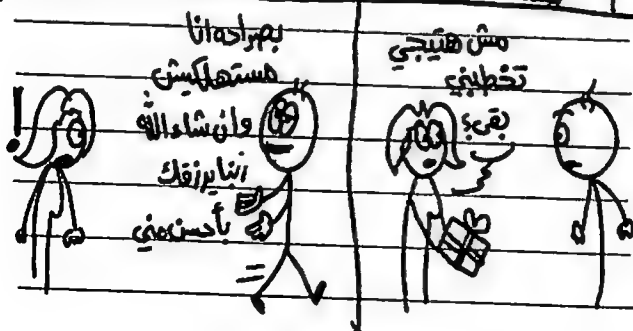 مش هتيجي
تخطبني
بقى؟
بصراحة انا
مستهلكيش
وان شاء الله
ربنا يرزقك
بأحسن مني
!